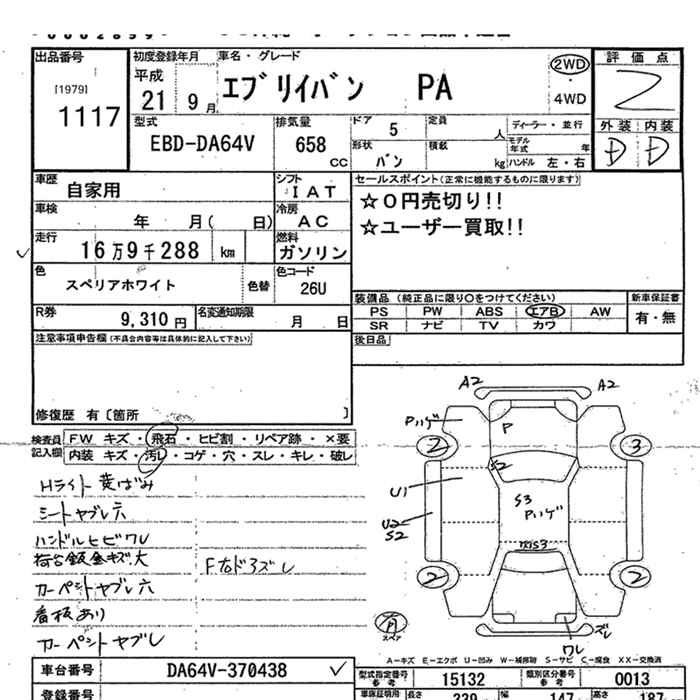 出品番号
[1979]
1117
初度登録年月
平成
21年 9月
車名・グレード
エブリイバン PA
2WD
・
4WD
評価点
2
外装 内装
D D
型式
EBD-DA64V
排気量
658 CC
ドア 5
形状 バン
定員 人
積載 kg
ディーラー・並行
モデル年式 年
ハンドル 左・右
車歴 自家用
シフト IAT
車検 年 月( 日)
冷房 AC
走行 16万9千288 km
燃料 ガソリン
色 スペリアホワイト
色替
色コード 26U
R券 9,310 円
名変通知期限 月 日
セールスポイント(正常に機能するものに限ります)
☆0円売切り!!
☆ユーザー買取!!
装備品(純正品に限り○をつけてください)
新車保証書
PS PW ABS エアB AW
SR ナビ TV カワ
有・無
後日品
注意事項申告欄(不具合内容等は具体的に記入して下さい)
修復歴 有〔箇所 〕
検査員記入欄
FW キズ・飛石・ヒビ割・リペア跡・×要
内装 キズ・汚レ・コゲ・穴・スレ・キレ・破レ
Hライト黄ばみ
シートヤブレ穴
ハンドルヒビワレ
荷台鈑金キズ大
カーペットヤブレ穴
看板あり
カーペットヤブレ
A2 A2
Pハゲ
P
2 3
S2
U1
S3
Pハゲ
U2
S2
S3
2 2
有
スペア
ズレ
ワレ
A-キズ E-エクボ U-凹み W-補修跡 S-サビ C-腐食 XX-交換済
車台番号 DA64V-370438
型式指定番号参考 15132
類別区分番号参考 0013
登録番号
長さ 339
幅 147
高さ 187